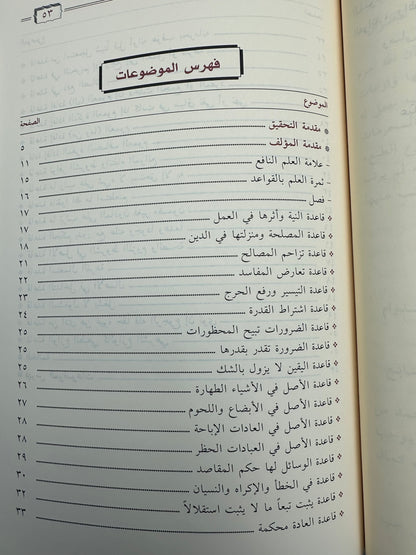 ٥٣
فهرس الموضوعات
الموضوع الصفحة
* مقدمة التحقيق ........ ٥
* مقدمة المؤلف ........ ١١
- علامة العلم النافع ........ ١٥
- ثمرة العلم بالقواعد ........ ١٦
- فصل ........ ١٧
* قاعدة النية وأثرها في العمل ........ ١٧
* قاعدة المصلحة ومنزلتها في الدين ........ ١٨
* قاعدة تزاحم المصالح ........ ٢١
* قاعدة تعارض المفاسد ........ ٢٢
* قاعدة التيسير ورفع الحرج ........ ٢٣
* قاعدة اشتراط القدرة ........ ٢٤
* قاعدة الضرورات تبيح المحظورات ........ ٢٥
* قاعدة الضرورة تقدر بقدرها ........ ٢٥
* قاعدة اليقين لا يزول بالشك ........ ٢٥
* قاعدة الأصل في الأشياء الطهارة ........ ٢٦
* قاعدة الأصل في الأبضاع واللحوم ........ ٢٧
* قاعدة الأصل في العادات الإباحة ........ ٢٨
* قاعدة الأصل في العبادات الحظر ........ ٢٨
* قاعدة الوسائل لها حكم المقاصد ........ ٢٩
* قاعدة في الخطأ والإكراه والنسيان ........ ٣٠
* قاعدة يثبت تبعاً ما لا يثبت استقلالاً ........ ٣٢
* قاعدة العادة محكمة ........ ٣٣